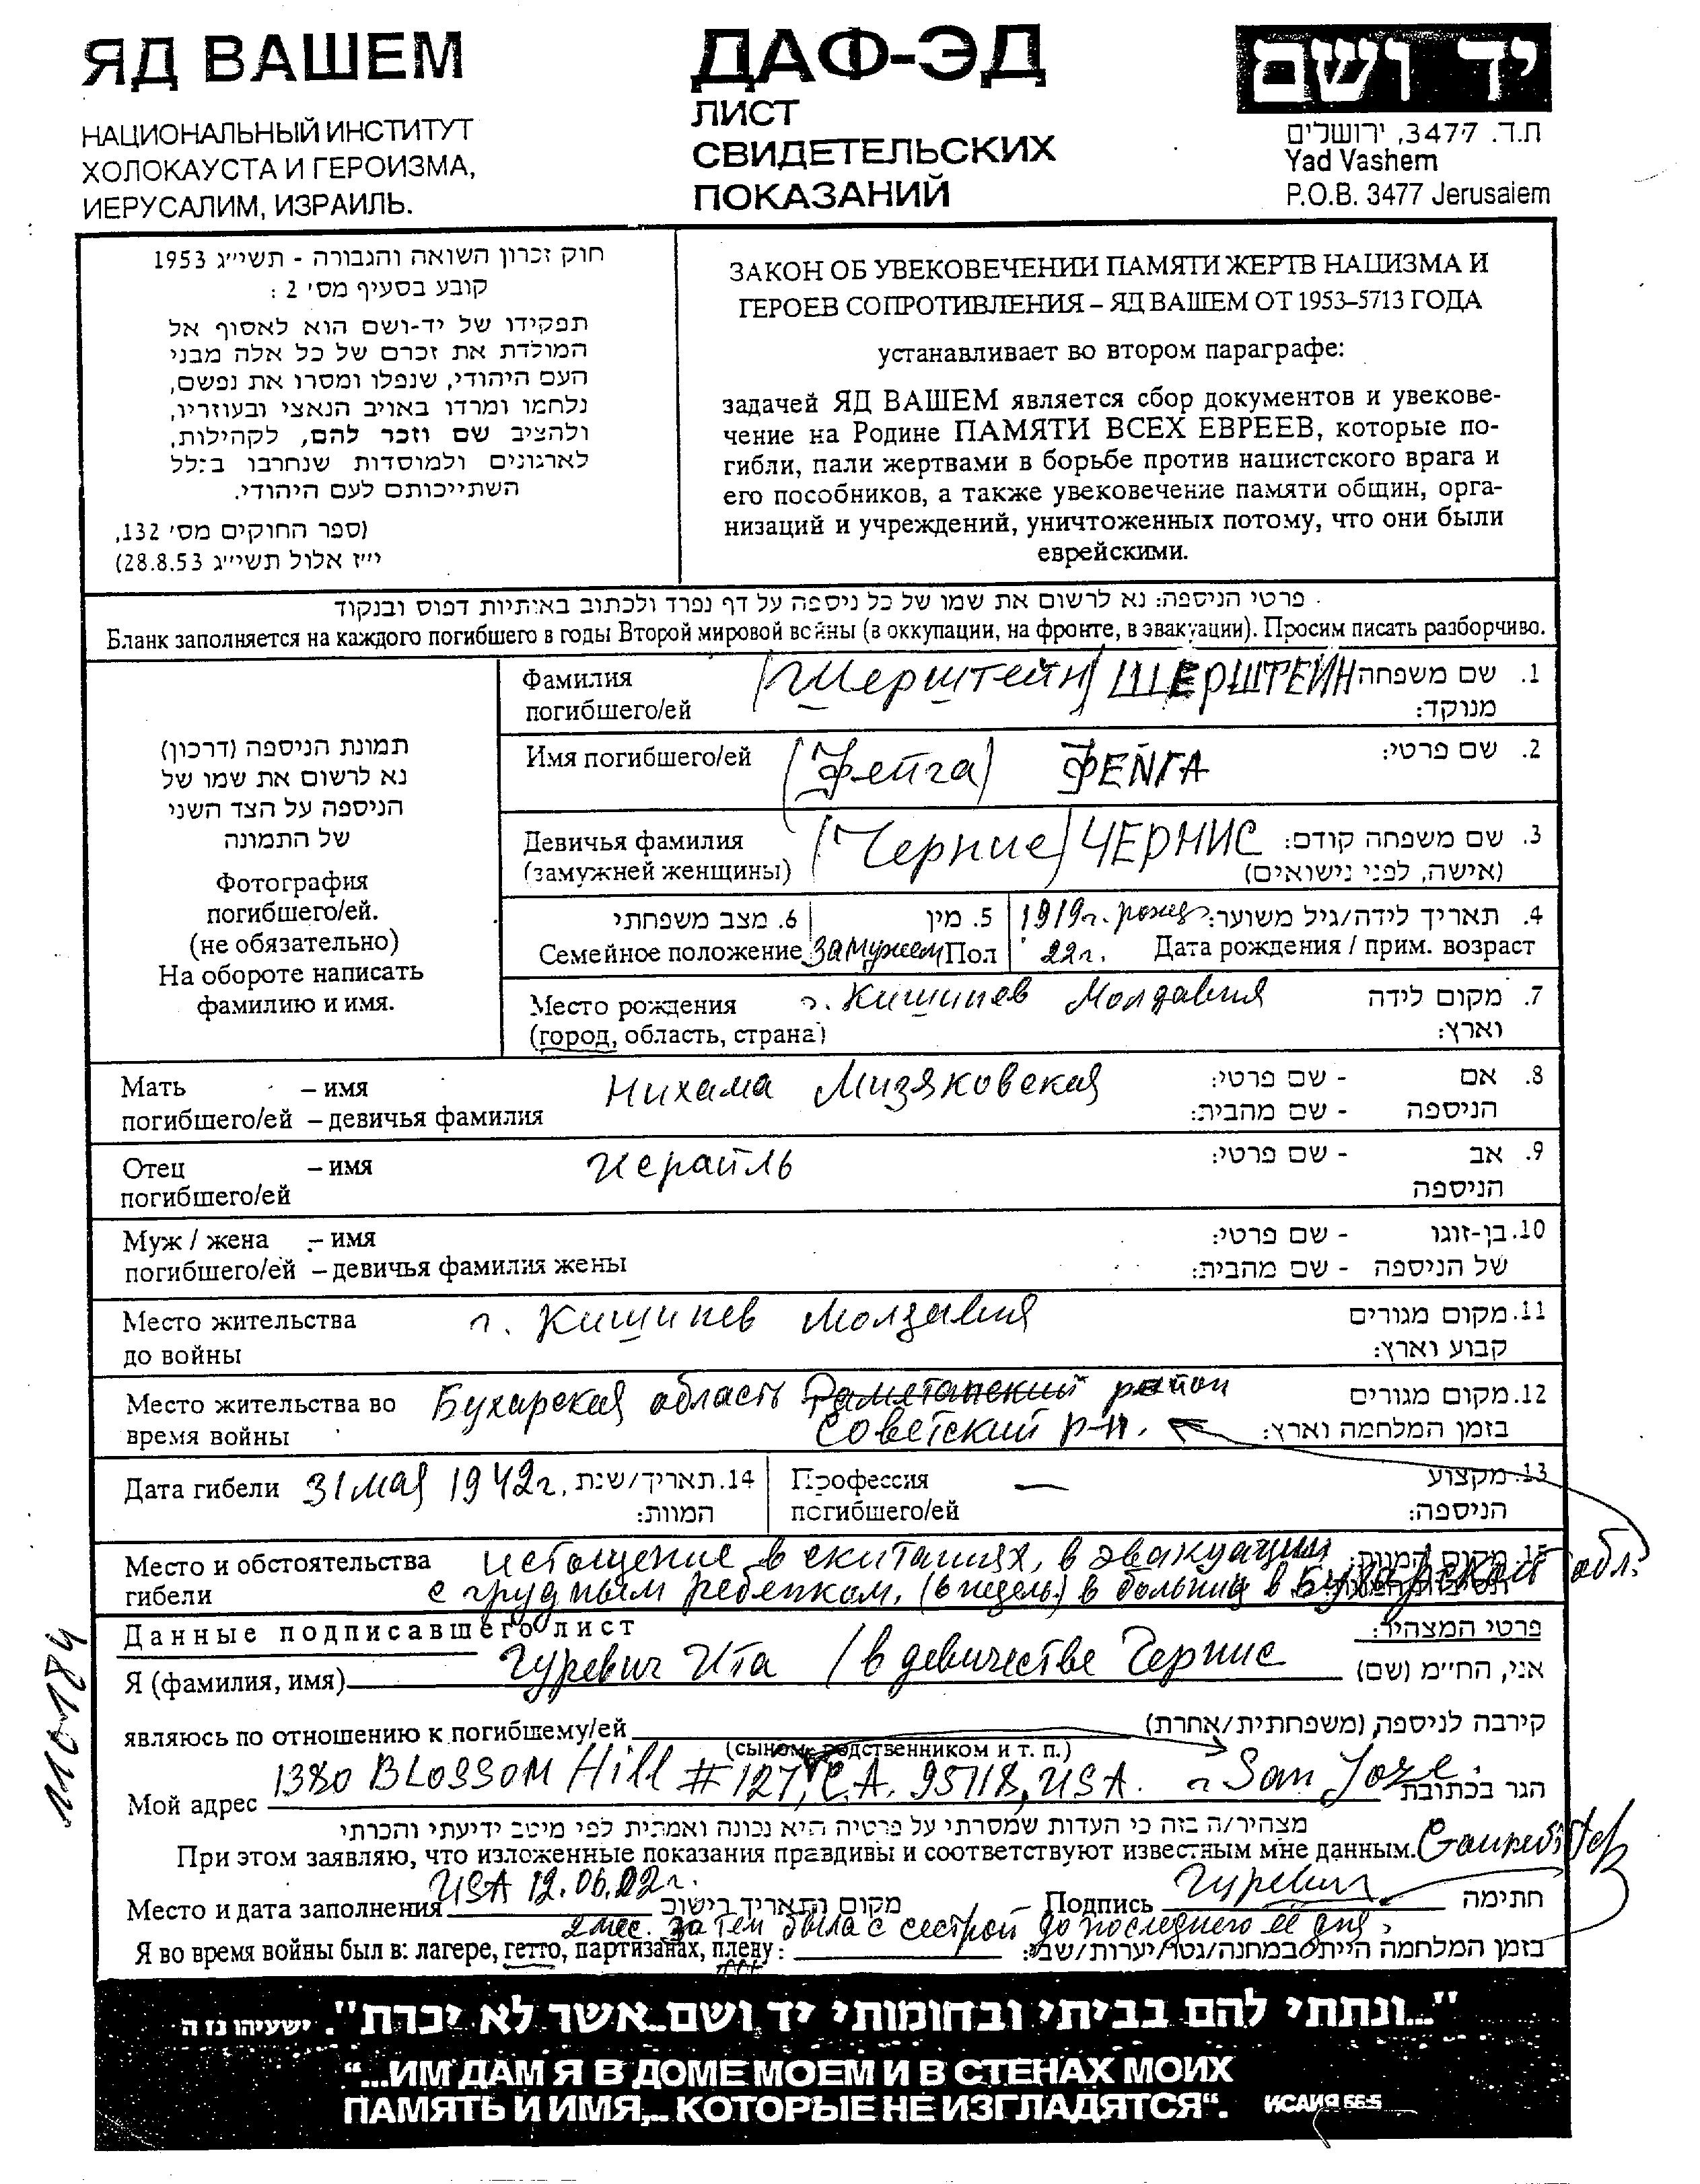 ЯД ВАШЕМ
НАЦИОНАЛЬНЫЙ ИНСТИТУТ
ХОЛОКАУСТА И ГЕРОИЗМА,
ИЕРУСАЛИМ, ИЗРАИЛЬ.
ДАФ-ЭД
ЛИСТ
СВИДЕТЕЛЬСКИХ
ПОКАЗАНИЙ
יד ושם
ת.ד. 3477, ירושלים
Yad Vashem
P.O.B. 3477 Jerusalem
חוק זכרון השואה והגבורה - תשי״ג 1953
קובע בסעיף מס׳ 2 :
תפקידו של יד-ושם הוא לאסוף אל
המולדת את זכרם של כל אלה מבני
העם היהודי, שנפלו ומסרו את נפשם,
נלחמו ומרדו באויב הנאצי ובעוזריו,
ולהציב שם וזכר להם, לקהילות,
לארגונים ולמוסדות שנחרבו בגלל
השתייכותם לעם היהודי.
(ספר החוקים מס׳ 132,
י״ז אלול תשי״ג 28.8.53)
ЗАКОН ОБ УВЕКОВЕЧЕНИИ ПАМЯТИ ЖЕРТВ НАЦИЗМА И
ГЕРОЕВ СОПРОТИВЛЕНИЯ – ЯД ВАШЕМ ОТ 1953–5713 ГОДА
устанавливает во втором параграфе:
задачей ЯД ВАШЕМ является сбор документов и увекове-
чение на Родине ПАМЯТИ ВСЕХ ЕВРЕЕВ, которые по-
гибли, пали жертвами в борьбе против нацистского врага и
его пособников, а также увековечение памяти общин, орга-
низаций и учреждений, уничтоженных потому, что они были
еврейскими.
פרטי הניספה: נא לרשום את שמו של כל ניספה על דף נפרד ולכתוב באותיות דפוס ובנקוד
Бланк заполняется на каждого погибшего в годы Второй мировой войны (в оккупации, на фронте, в эвакуации). Просим писать разборчиво.
תמונת הניספה (דרכון)
נא לרשום את שמו של
הניספה על הצד השני
של התמונה
Фотография
погибшего/ей.
(не обязательно)
На обороте написать
фамилию и имя.
Фамилия (Шерштейн) ШЕРШТЕЙН 1. שם משפחה
погибшего/ей מנוקד:
Имя погибшего/ей (Фейга) ФЕЙГА 2. שם פרטי:
Девичья фамилия (Чернис) ЧЕРНИС 3. שם משפחה קודם:
(замужней женщины) (אישה, לפני נישואים)
6. מצב משפחתי 5. מין 1919г. рожд 4. תאריך לידה/גיל משוער:
Семейное положение замужем Пол 22г. Дата рождения / прим. возраст
Место рождения г. Кишинев Молдавия 7. מקום לידה
(город, область, страна) וארץ:
Мать – имя Нихама Мизяковская 8. אם - שם פרטי:
погибшего/ей – девичья фамилия הניספה - שם מהבית:
Отец – имя Исраиль 9. אב - שם פרטי:
погибшего/ей הניספה
Муж / жена – имя 10. בן-זוגו - שם פרטי:
погибшего/ей – девичья фамилия жены של הניספה - שם מהבית:
Место жительства г. Кишинев Молдавия 11. מקום מגורים
до войны קבוע וארץ:
Место жительства во Бухарская область район 12. מקום מגורים
время войны Советский р-н. בזמן המלחמה וארץ:
Дата гибели 31 мая 1942г. 14. תאריך/שנת Профессия — 13. מקצוע
המוות: погибшего/ей הניספה:
Место и обстоятельства истощение в скитаниях, в эвакуации 15. מקום המוות:
гибели с грудным ребенком. (6 недель) в больнице в Бухарской обл.
Данные подписавшего лист פרטי המצהיר:
Я (фамилия, имя) Гуревич Ита / в девичестве Чернис אני, הח״מ (שם)
являюсь по отношению к погибшему/ей קירבה לניספה (משפחתית/אחרת)
(сыном, родственником и т. п.)
Мой адрес 1380 BLOSSOM Hill #127, C.A. 95118, USA. г San Joze. הגר בכתובת
מצהיר/ה בזה כי העדות שמסרתי על פרטיה היא נכונה ואמתית לפי מיטב ידיעתי והכרתי
При этом заявляю, что изложенные показания правдивы и соответствуют известным мне данным.
Место и дата заполнения USA 12.06.02г. מקום ותאריך רישום Подпись Гуревич חתימה
2 мес. затем была с сестрой до последнего её дня,
Я во время войны был в: лагере, гетто, партизанах, плену: בזמן המלחמה הייתי במחנה/גטו/יערות/שבי:
110184
"...ונתתי להם בביתי ובחומותי יד ושם...אשר לא יכרת". ישעיהו נז ה
“...ИМ ДАМ Я В ДОМЕ МОЕМ И В СТЕНАХ МОИХ
ПАМЯТЬ И ИМЯ,... КОТОРЫЕ НЕ ИЗГЛАДЯТСЯ“. ИСАИЯ 56:5